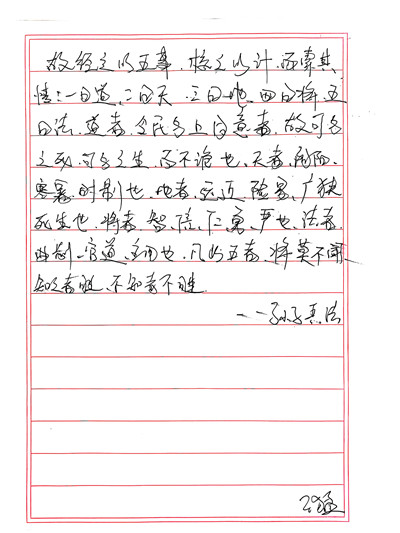 故经之以五事,校之以计,而索其
情:一曰道,二曰天,三曰地,四曰将,五
曰法,道者,令民与上同意者,故可与
之死,可与之生,而不诡也,天者,阴阳、
寒暑、时制也,地者,远近、险易、广狭
死生也,将者,智、信、仁、勇、严也,法者,
曲制、官道、主用也,凡此五者,将莫不闻
知之者胜,不知者不胜
——孙子兵法